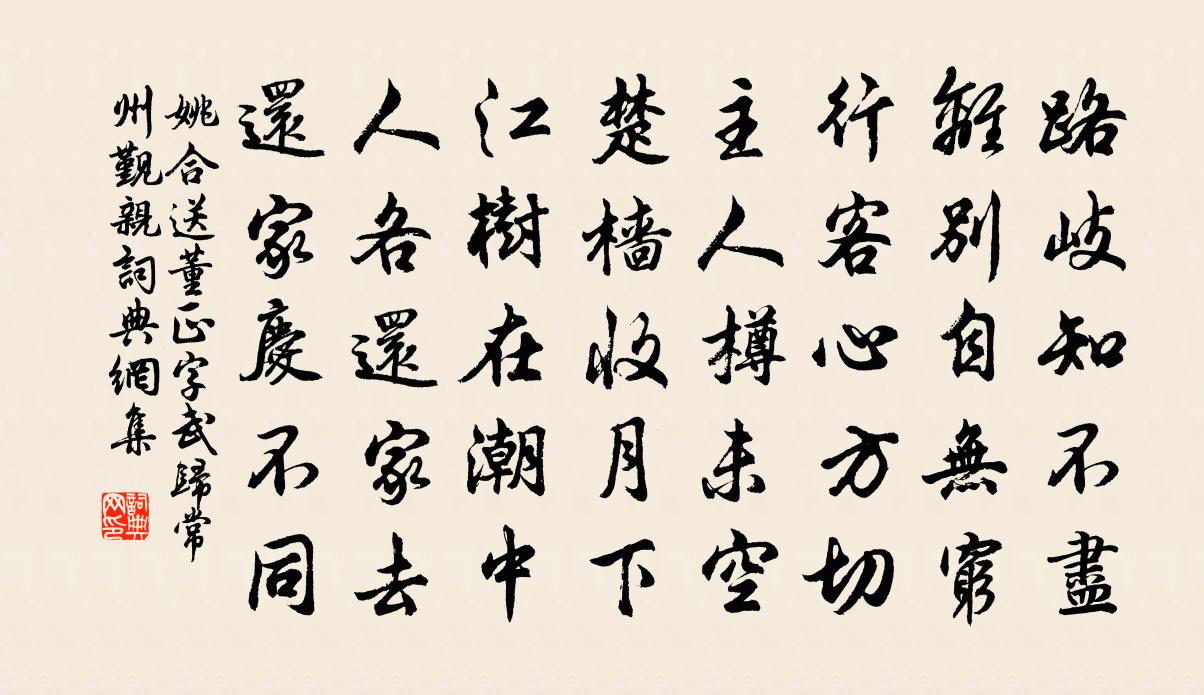 路岐知不盡
離別自無窮
行客心方切
主人樽未空
楚檣收月下
江樹在潮中
人各還家去
還家慶不同
姚合送董正字武歸常
州觀親詞典網集
詞典网印